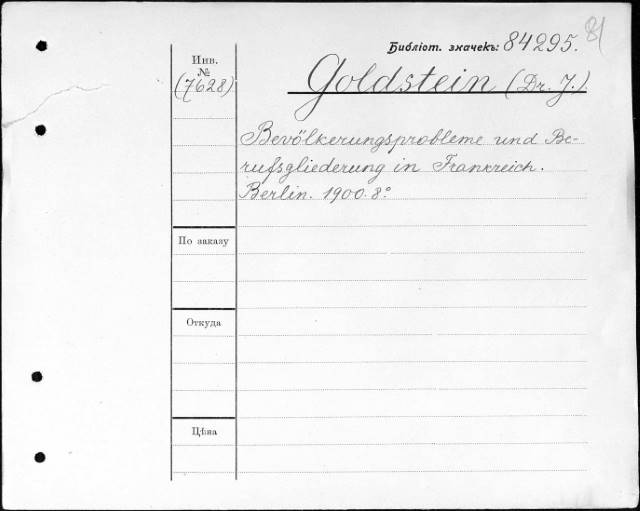 Библіот. значекъ: 84295.
Инв.
№
(7628)
Goldstein (Dr. J.)
Bevölkerungsprobleme und Be-
rufsgliederung in Frankreich.
Berlin. 1900. 8°
По заказу
Откуда
Цѣна